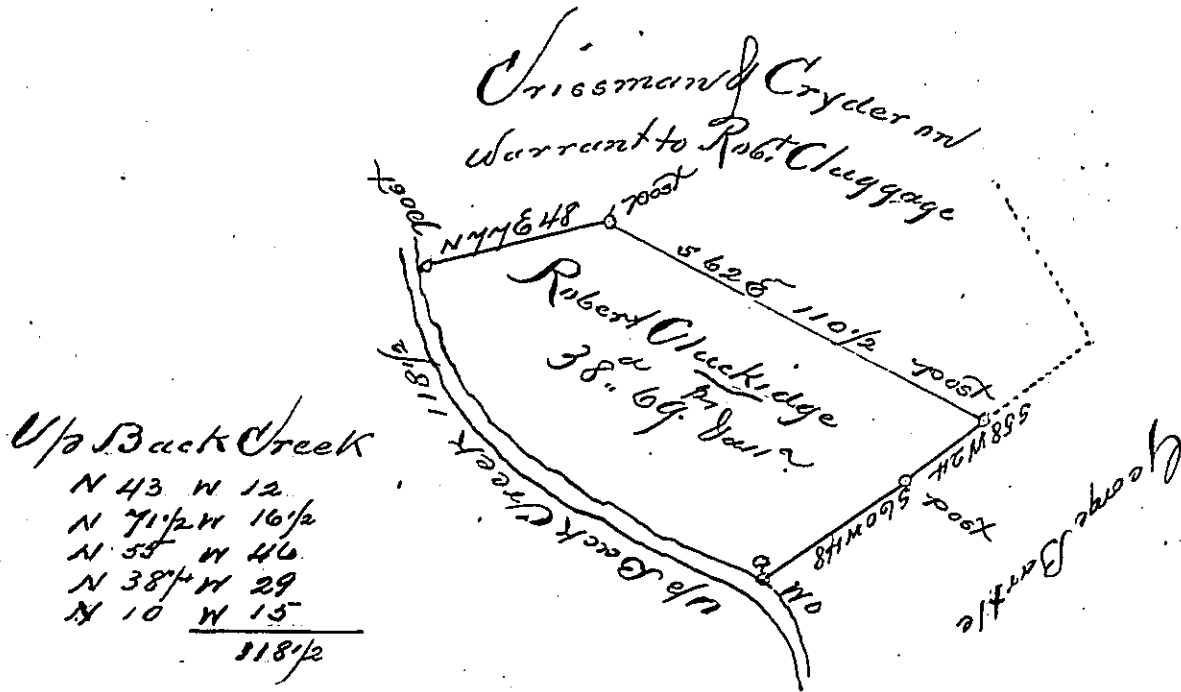 Crissman & Cryder on
Warrant to Robt. Cluggage
post
N 77 E 48
post
S 62 E 110 1/2
post
Robert Cluckidge
38 a 69 p
S 58 W 24
post
S 60 W 48
WO
George Bartle
Up Back Creek 118 1/2
Up Back Creek
N 43 W 12
N 71 1/2 W 16 1/2
N 55 W 46
N 38 1/4 W 29
N 10 W 15
118 1/2